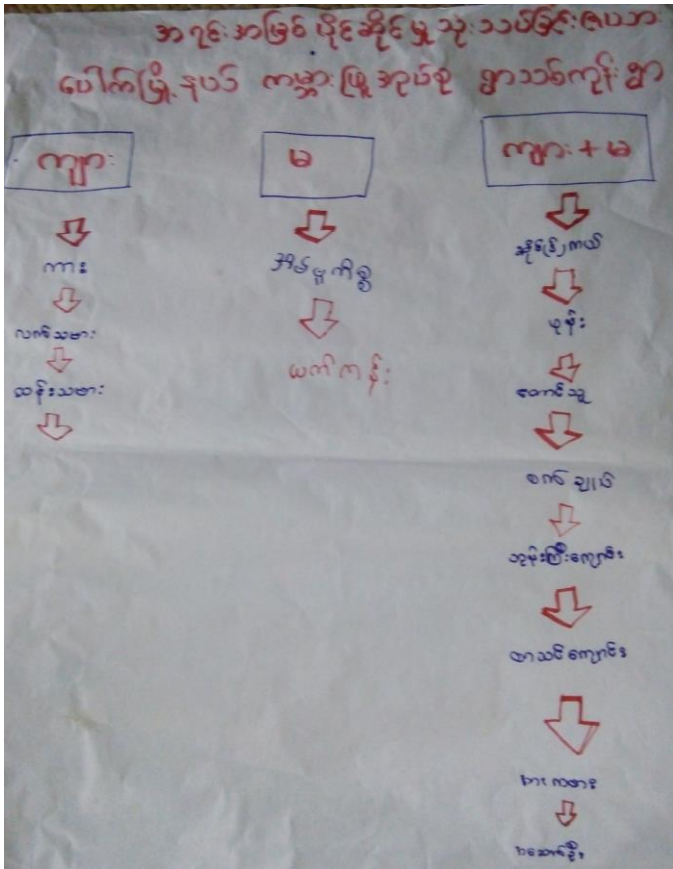 အရင်းအမြစ် ပိုင်ဆိုင်မှု သုံးသပ်ခြင်းဇယား
ပေါက်မြို့နယ် ကမ္ဘားဖြူအုပ်စု ရွာသစ်ကုန်းရွာ
ကျား
မ
ကျား + မ
ကား
လက်သမား
ပန်းသမား
အိမ်မှုကိစ္စ
ယက်ကန်း
ဆိုင်ကယ်
ဖုန်း
တောင်သူ
စက်ချုပ်
ဘုန်းကြီးကျောင်း
စာသင်ကျောင်း